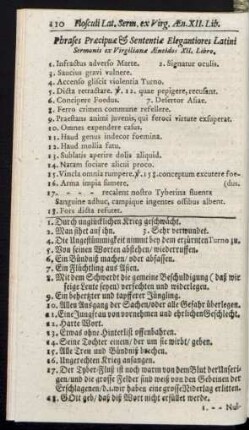 230 Flosculi Lat. Serm. ex Virg. Æn. XII. Lib.
Phrases Præcipuæ & Sententiæ Elegantiores Latini
Sermonis ex Virgilianæ Æneidos XII. Libro.
1. Infractus adverso Marte. 2. Signatur oculis.
3. Saucius gravi vulnere.
4. Accenso gliscit violentia Turno.
5. Dicta retractare. ℣. 12. quæ pepigere, recusent.
6. Concipere Foedus. 7. Desertor Asiæ.
8. Ferro crimen commune refellere.
9. Præstans animi juvenis, qui feroci virtute exsuperat.
10. Omnes expendere casus.
11. Haud genus indecor foemina.
12. Haud mollia fatu.
13. Sublatis aperire dolis aliquid.
14. Natam sociare alicui proco.
15. Vincla omnia rumpere. ℣. 158. conceptum excutere foe-
16. Arma impia sumere. (dus.
17. - - recalent nostro Tyberina fluenta
Sanguine adhuc, campique ingentes ossibus albent.
18. Fors dicta refutet.
1. Durch unglücklichen Krieg geschwächt.
2. Man sihet auf ihn. 3. Sehr verwundet.
4. Die Ungestümmigkeit nimmt bey dem erzürnten Turno zu.
5. Von seinen Worten abstehen/ wiederruffen.
6. Ein Bündniß machen/ oder abfassen.
7. Ein Flüchtling aus Asien.
8. Mit dem Schwerdt die gemeine Beschuldigung (daß wir
feige Leute seyen) versechten und widerlegen.
9. Ein behertzter und tapfferer Jüngling.
10. Allen Ausgang der Sachen/ oder alle Gefahr überlegen.
11. Eine Jungfrau von vornehmen und ehrlichen Geschlecht.
12. Harte Wort.
13. Etwas ohne Hinterlist offenbahren.
14. Seine Tochter einem/ der um sie wirbt/ geben.
15. Alle Treu und Bündniß brechen.
16. Ungerechten Krieg anfangen.
17. Der Tyber-Fluß ist noch warm von dem Blut der Unseri-
gen/ und die grosse Felder sind weiß von den Gebeinen der
Erschlagenen/ d.i. wir haben eine grosse Niderlag erlitten.
18. GOtt geb/ daß das Wort nicht erfüllet werde.